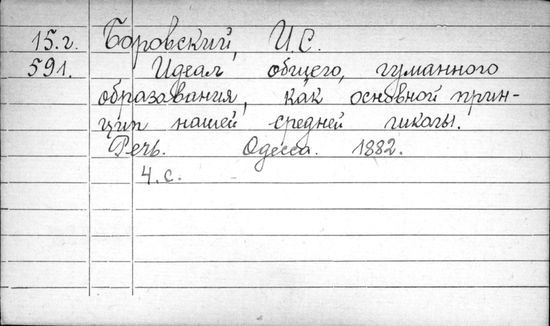 15.г. Боровский, И.С.
591. Идеал общего, гуманного
образования, как основной прин-
цип нашей средней школы.
Речь. Одесса. 1882.
4.с.